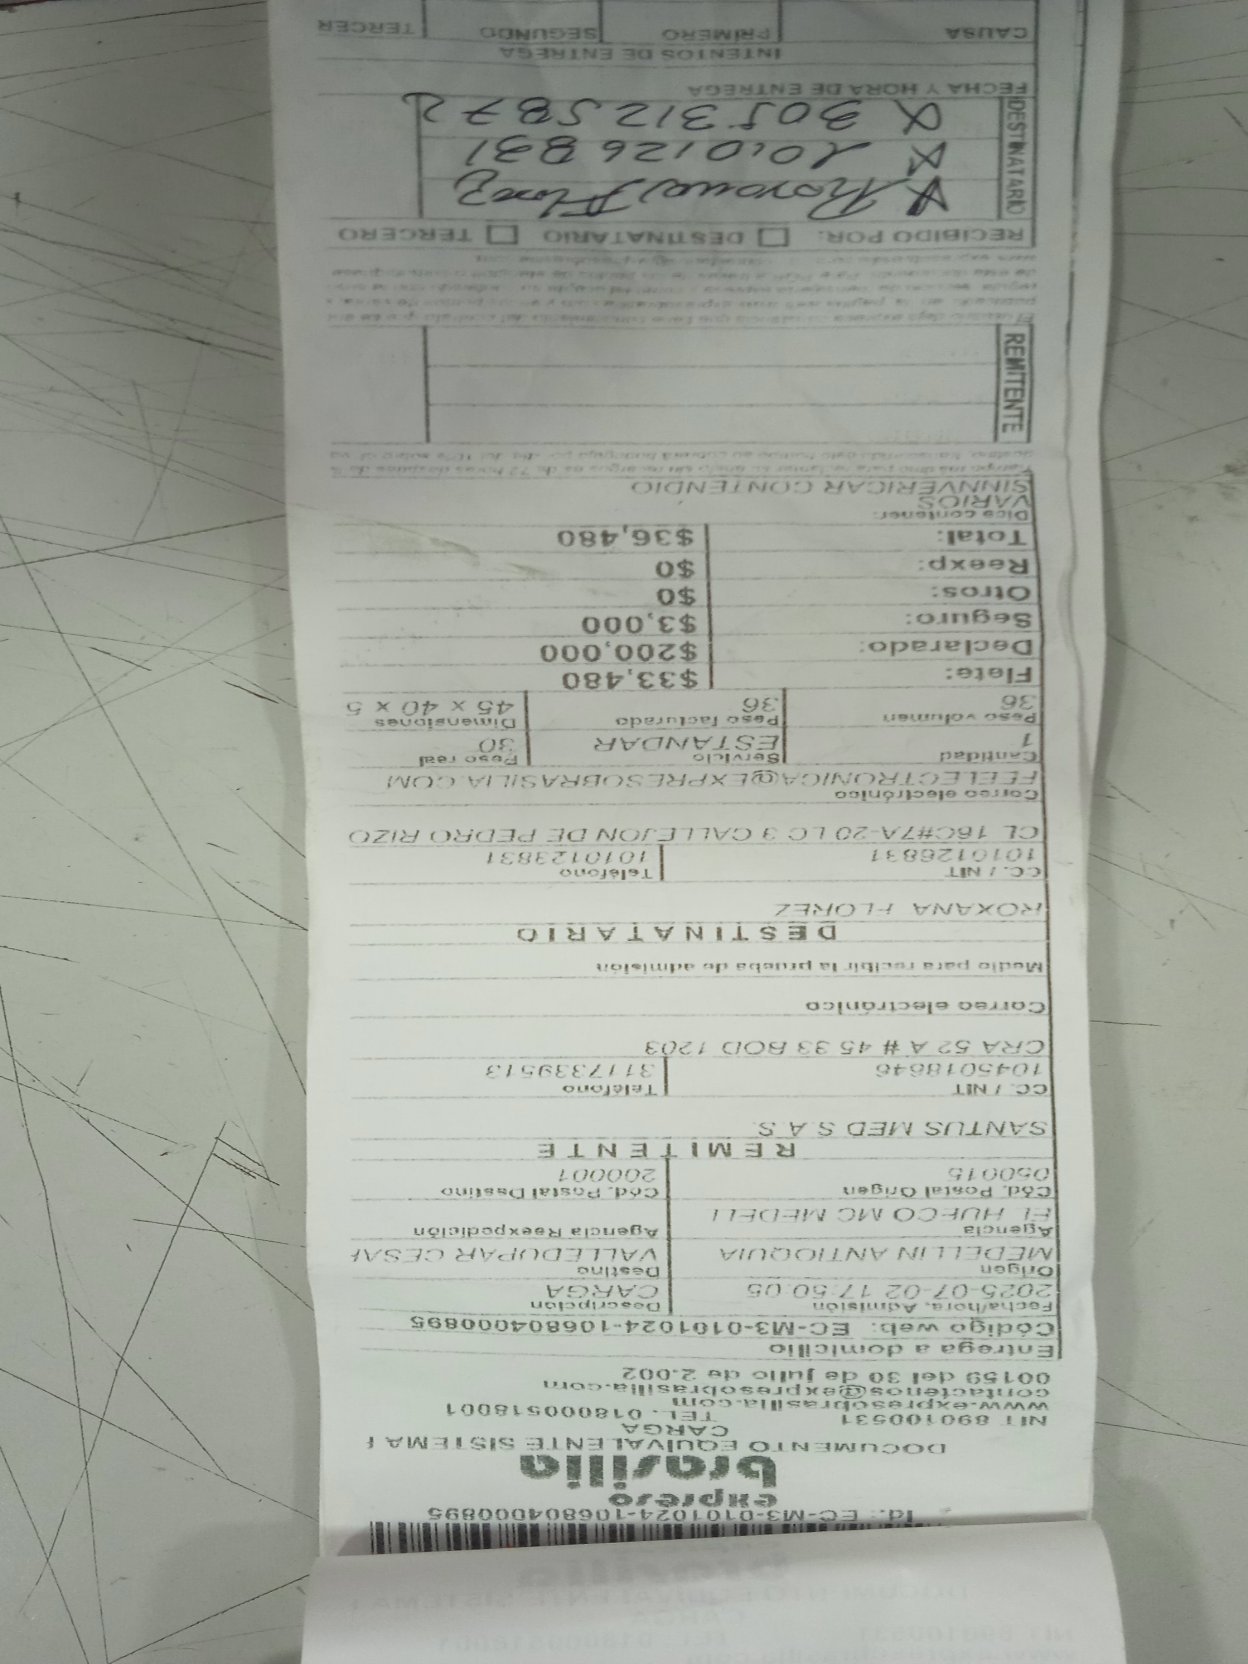 Id.: EC-M3-0101024-106804000895
expreso
brasilia
DOCUMENTO EQUIVALENTE SISTEMA
CARGA
NIT 890100531 TEL. 018000518001
www.expresobrasilia.com
contactenos@expresobrasilia.com
00159 del 30 de julio de 2.002
Entrega a domicilio
Código web: EC-M3-0101024-106804000895
Fecha/hora. Admisión Descripción
2025-07-02 17:50:05 CARGA
Origen Destino
MEDELLIN ANTIOQUIA VALLEDUPAR CESAR
Agencia Agencia Reexpedición
EL HUECO MC MEDELL
Cód. Postal Origen Cód. Postal Destino
050015 200001
REMITENTE
SANTUS MED S.A.S.
CC. / NIT Teléfono
1045018646 3117339513
CRA 52 A # 45 33 BOD 1203
Correo electrónico
Medio para recibir la prueba de admisión
DESTINATARIO
ROXANA FLOREZ
CC. / NIT Teléfono
1010126831 1010123831
CL 16C#7A-20 LC 3 CALLEJON DE PEDRO RIZO
Correo electrónico
FEELECTRONICA@EXPRESOBRASILIA.COM
Cantidad Servicio Peso real
1 ESTANDAR 30
Peso volumen Peso facturado Dimensiones
36 36 45 x 40 x 5
Flete: $33,480
Declarado: $200,000
Seguro: $3,000
Otros: $0
Reexp: $0
Total: $36,480
Dice contener:
VARIOS
SINNVERICAR CONTENDIO
REMITENTE
RECIBIDO POR: DESTINATARIO TERCERO
DESTINATARIO
x Roxana Florez
x 1010126831
x 305 312 5872
FECHA Y HORA DE ENTREGA
INTENTOS DE ENTREGA
CAUSA PRIMERO SEGUNDO TERCER